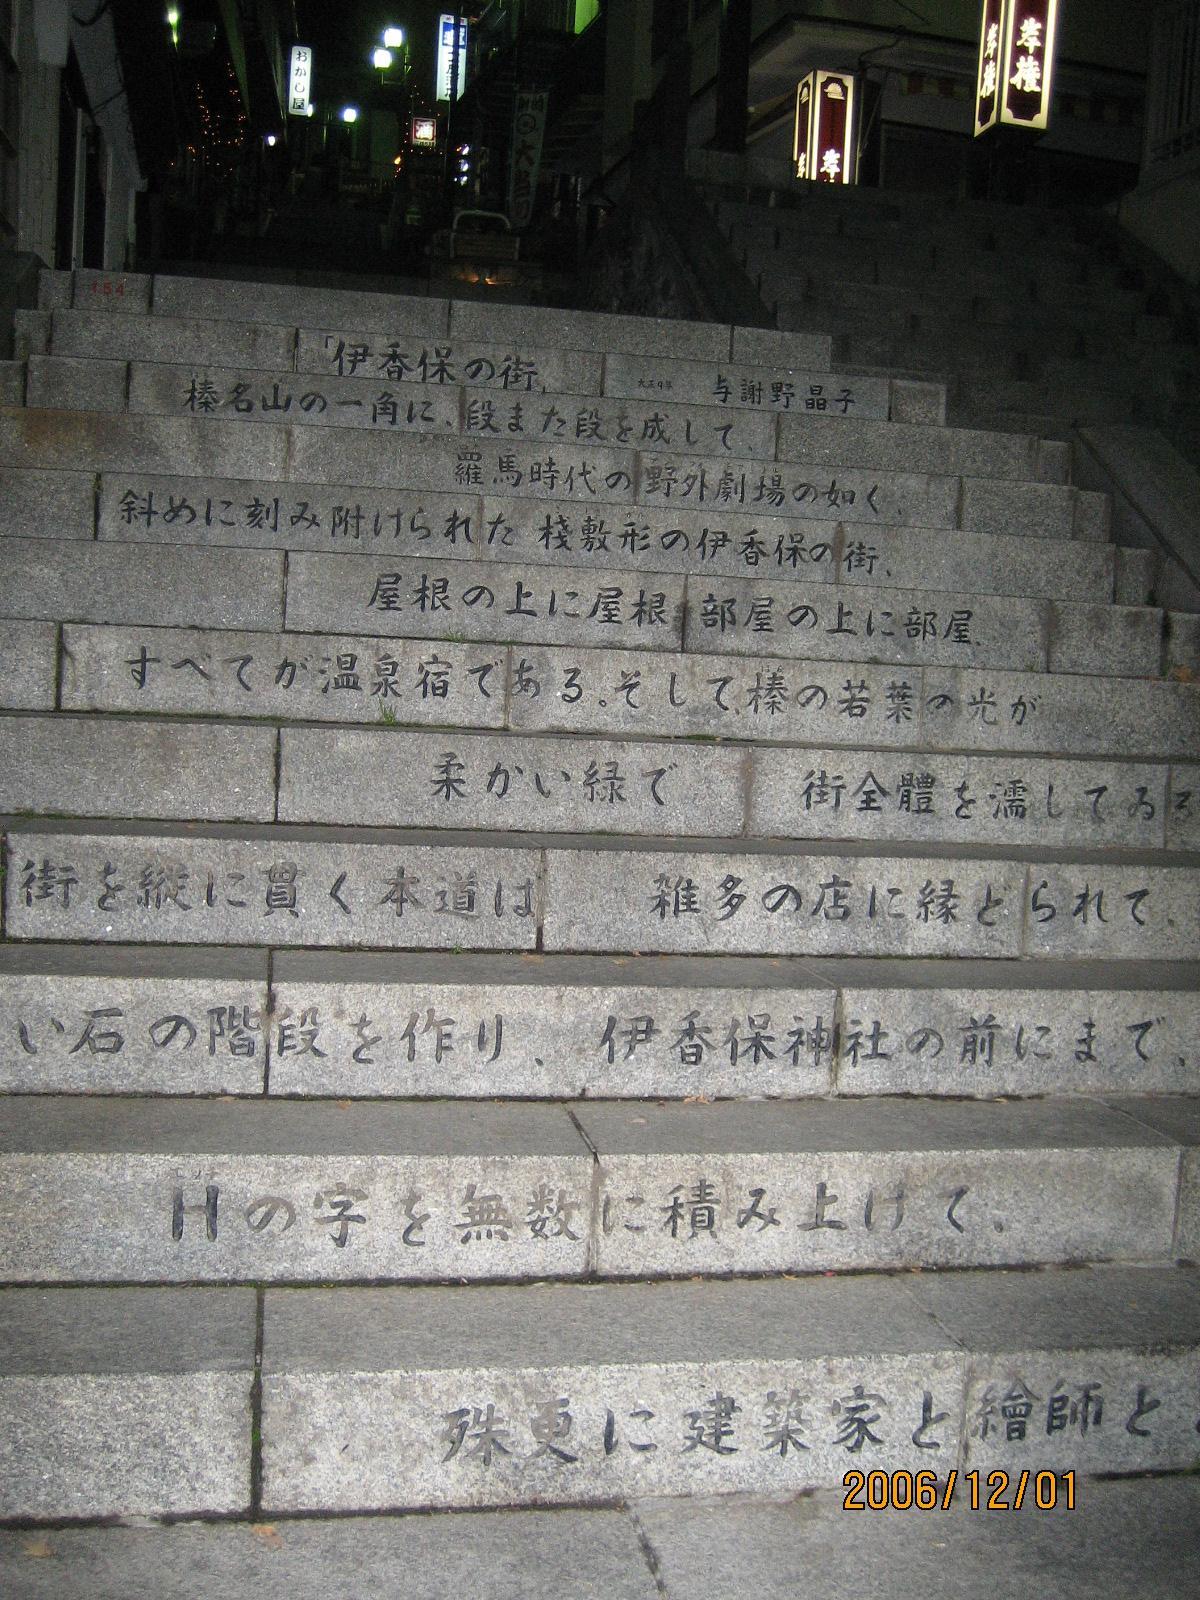 おかし屋
酒
岸権
岸権
岸
154
「伊香保の街」
大正9年 与謝野晶子
榛名山の一角に、段また段を成して、
羅馬時代の野外劇場の如く、
斜めに刻み附けられた 桟敷形の伊香保の街、
屋根の上に屋根、部屋の上に部屋、
すべてが温泉宿である。そして、榛の若葉の光が
柔かい緑で 街全體を濡してゐる
街を縦に貫く本道は 雑多の店に縁どられて、
い石の階段を作り、 伊香保神社の前にまで、
Hの字を無数に積み上げて、
殊更に建築家と繪師と
2006/12/01